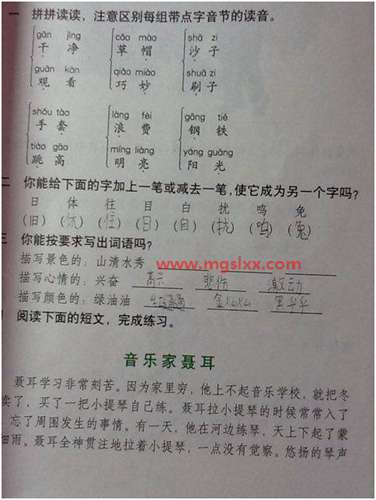 一 拼拼读读，注意区别每组带点字音节的读音。
gān jìng cǎo mào shā zi
干 净 草 帽 沙 子
guān kàn qiǎo miào shuā zi
观 看 巧 妙 刷 子
shǒu tào làng fèi gāng tiě
手 套 浪 费 钢 铁
tiào gāo míng liàng yáng guāng
跳 高 明 亮 阳 光
二 你能给下面的字加上一笔或减去一笔，使它成为另一个字吗？
日 体 往 目 白 扰 鸣 免
(旧) ( ) (住) (日) (自) ( ) (呜) (兔)
三 你能按要求写出词语吗？
描写景色的：山清水秀
www.mgslxx.com
描写心情的：兴奋 高兴 悲伤 激动
描写颜色的：绿油油 金灿灿 黑乎乎
阅读下面的短文，完成练习。
音乐家聂耳
聂耳学习非常刻苦。因为家里穷，他上不起音乐学校，就把冬
卖了，买了一把小提琴自己练。聂耳拉小提琴的时候常常入了
忘了周围发生的事情。有一天，他在河边练琴，天上下起了蒙
细雨。聂耳全神贯注地拉着小提琴，一点没有觉察。悠扬的琴声